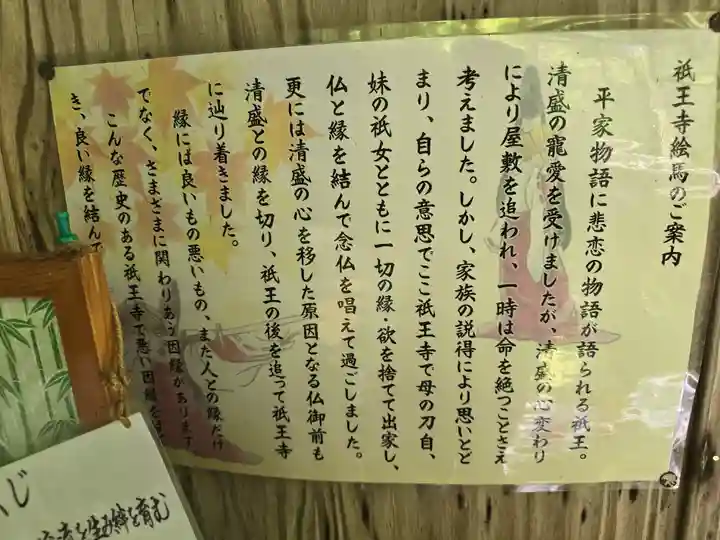 祇王寺絵馬のご案内
平家物語に悲恋の物語が語られる祇王。
清盛の寵愛を受けましたが、清盛の心変わり
により屋敷を追われ、一時は命を絶つことさえ
考えました。しかし、家族の説得により思いとど
まり、自らの意思でここ祇王寺で母の刀自、
妹の祇女とともに一切の縁・欲を捨てて出家し、
仏と縁を結んで念仏を唱えて過ごしました。
更には清盛の心を移した原因となる仏御前も
清盛との縁を切り、祇王の後を追って祇王寺
に辿り着きました。
縁には良いもの悪いもの、また人との縁だけ
でなく、さまざまに関わりあう因縁があります
こんな歴史のある祇王寺で悪い因縁を
き、良い縁を結んで
じ
を育む